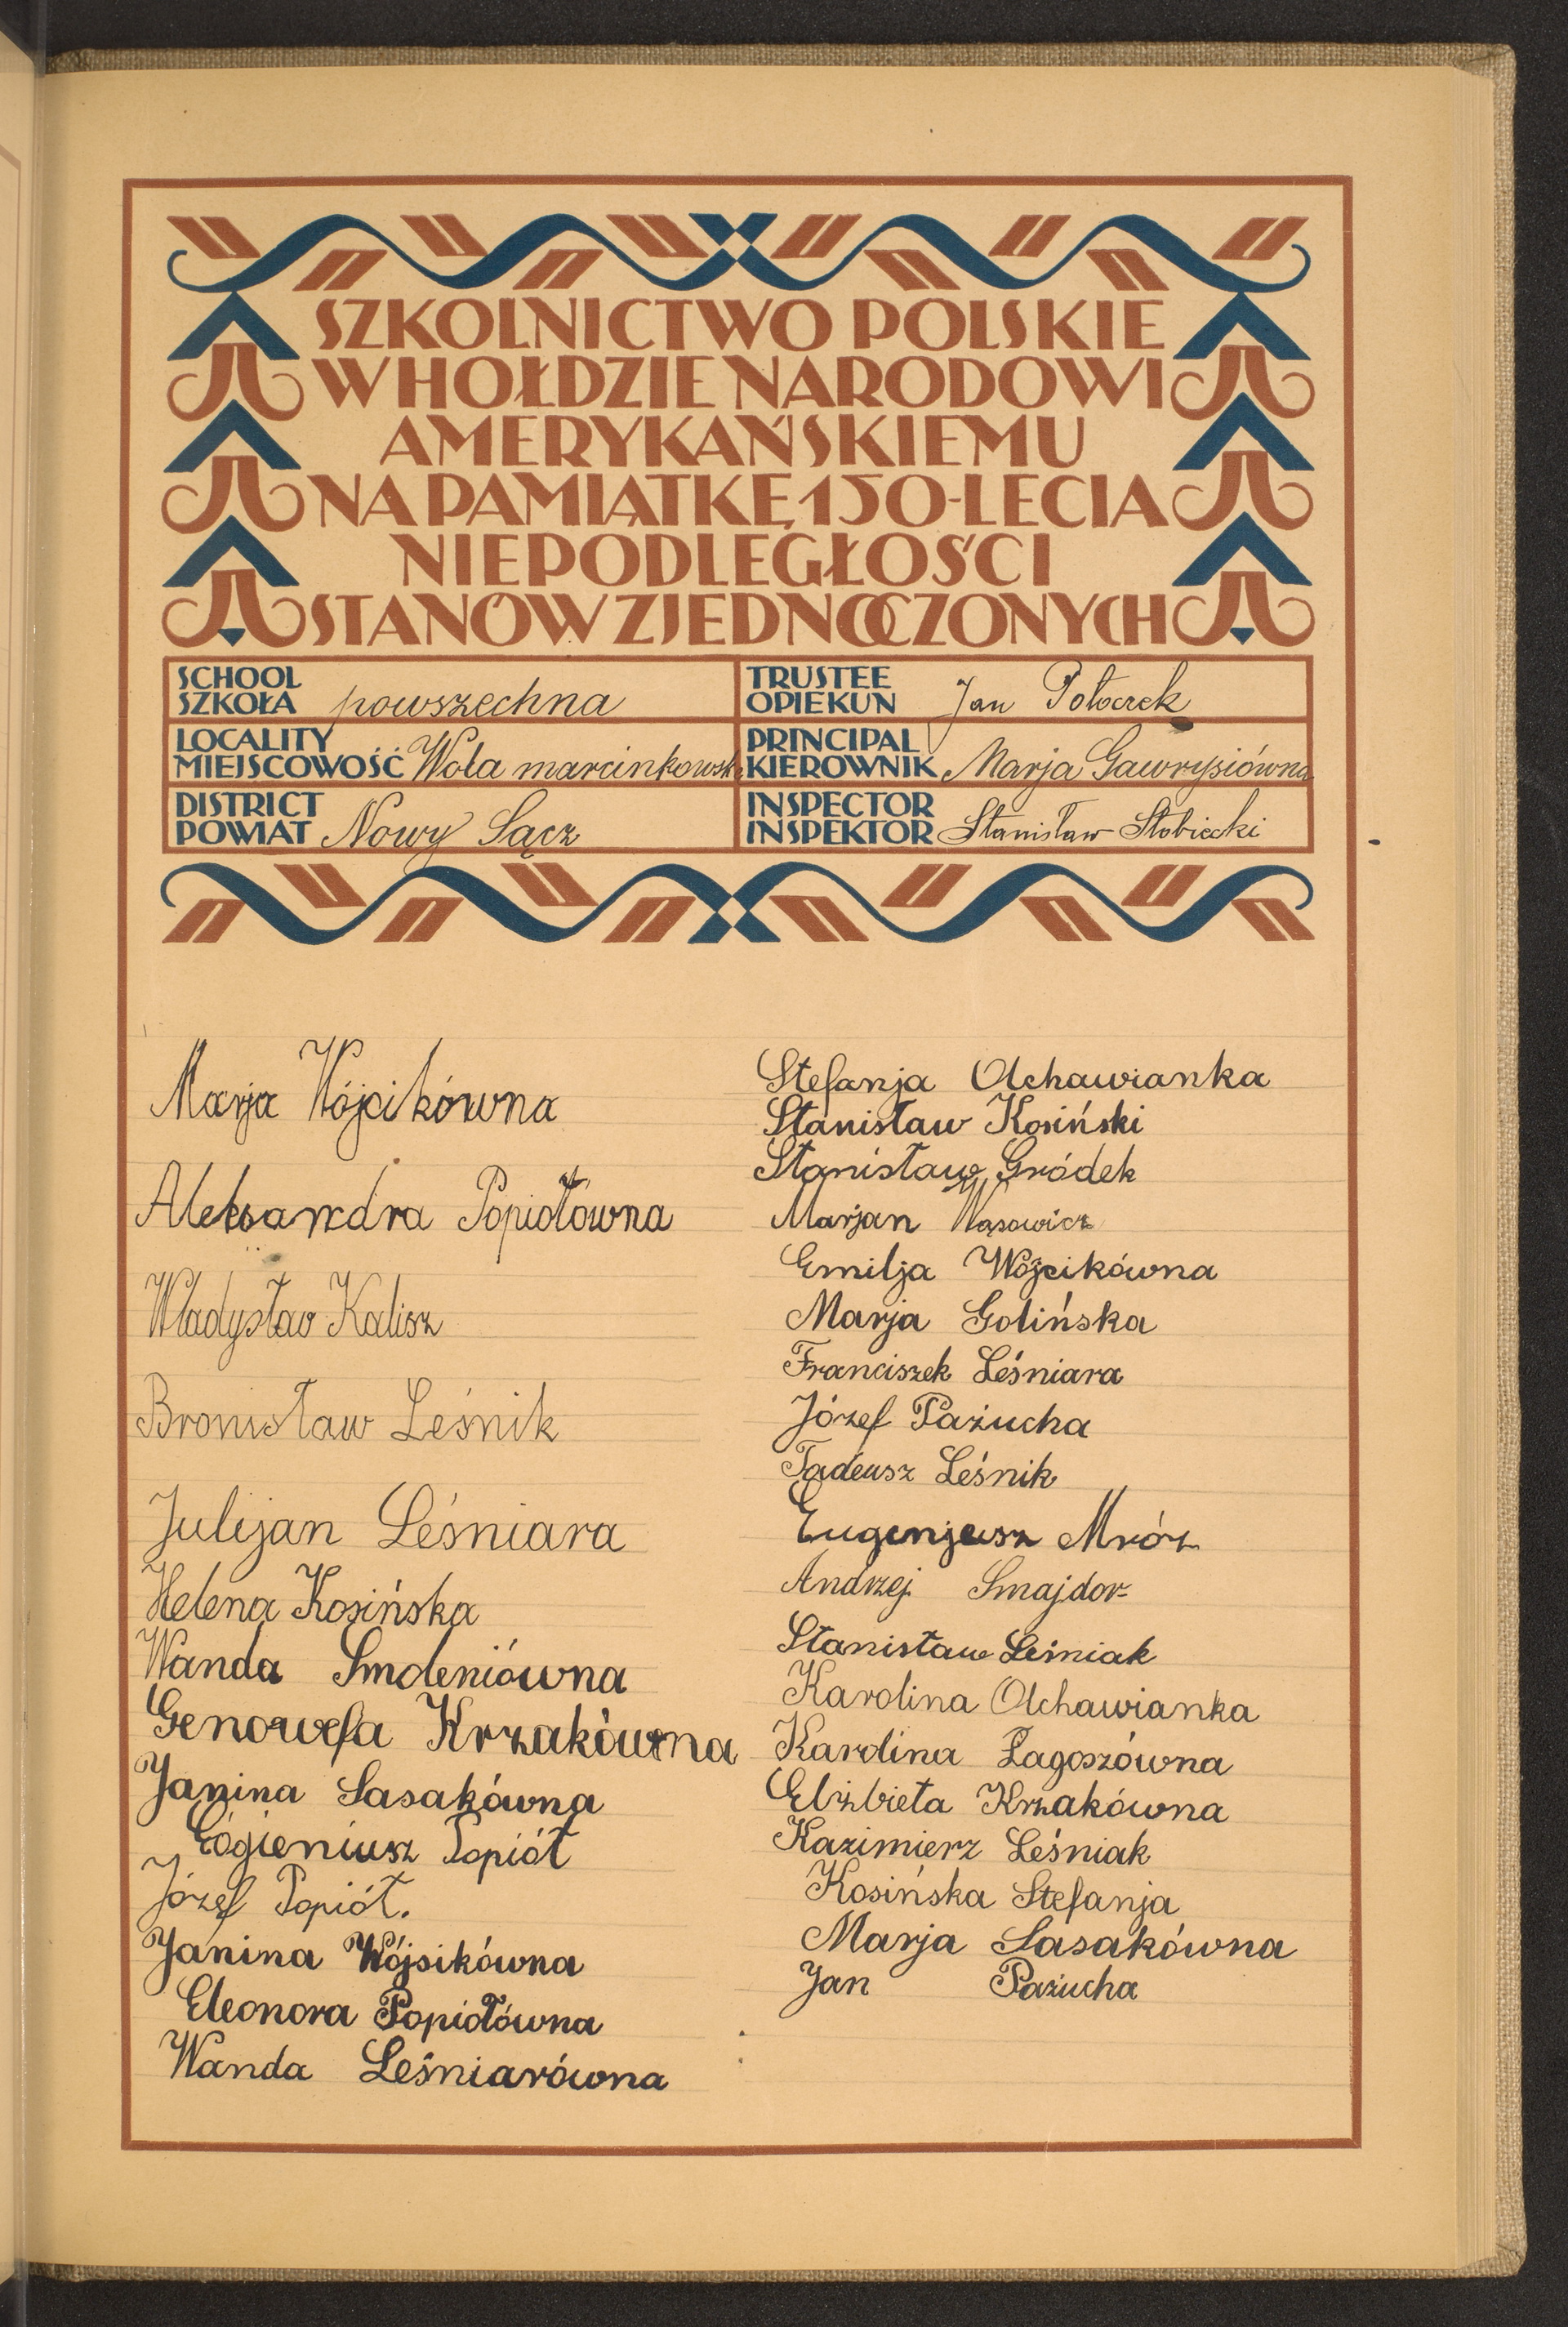 SZKOLNICTWO POLSKIE
W HOŁDZIE NARODOWI
AMERYKAŃSKIEMU
NA PAMIĄTKĘ 150-LECIA
NIEPODLEGŁOŚCI
STANÓW ZJEDNOCZONYCH
SCHOOL
SZKOŁA powszechna
TRUSTEE
OPIEKUN Jan Potoczek
LOCALITY
MIEJSCOWOŚĆ Wola marcinkowska
PRINCIPAL
KIEROWNIK Marja Gawrysiówna
DISTRICT
POWIAT Nowy Sącz
INSPECTOR
INSPEKTOR Stanisław Słobiecki
Marja Wójcikówna
Aleksandra Popiołówna
Władysław Kalisz
Bronisław Leśnik
Julijan Leśniara
Helena Kosińska
Wanda Smoleniówna
Genowefa Krzakówna
Janina Sasakówna
Eógieniusz Popiół
Józef Popiół.
Janina Wójsikówna
Eleonora Popiołówna
Wanda Leśniarówna
Stefanja Olchawianka
Stanisław Kosiński
Stanisław Gródek
Marjan Wąsowicz
Emilja Wójcikówna
Marja Golińska
Franciszek Leśniara
Józef Pażucha
Tadeusz Leśnik
Eugenjusz Mróz
Andrzej Smajdor
Stanisław Leśniak
Karolina Olchawianka
Karolina Łagoszówna
Elżbieta Krzakówna
Kazimierz Leśniak
Kosińska Stefanja
Marja Sasakówna
Jan Pażucha